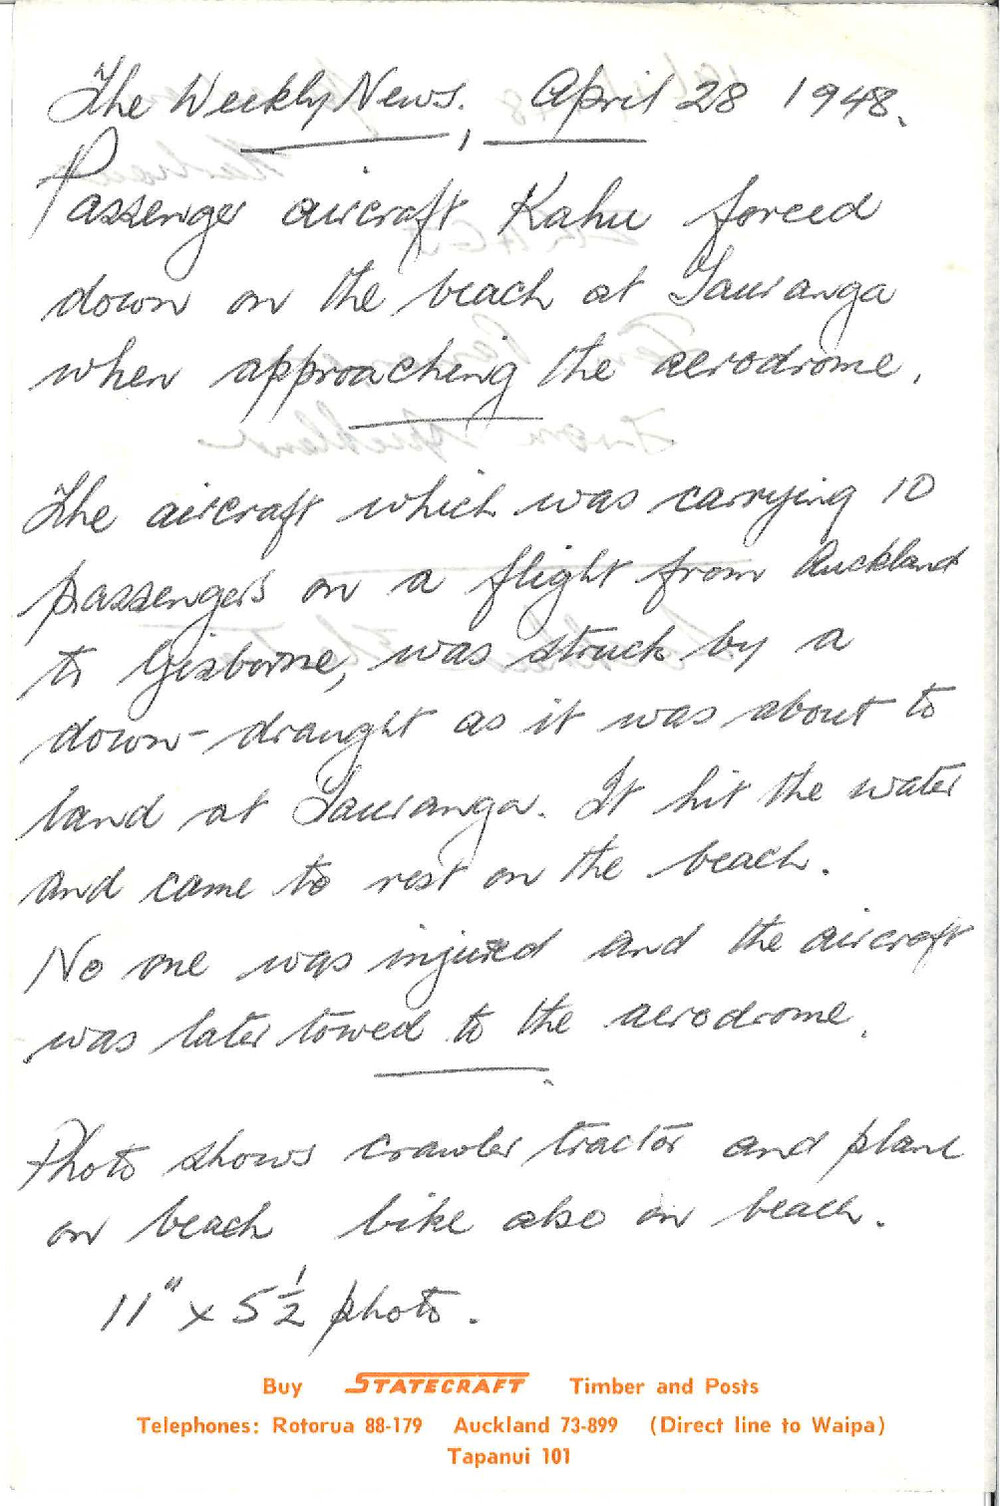 The Weekly News, April 28 1948.
Passenger aircraft Kahu forced
down on the beach at Tauranga
when approaching the aerodrome.
The aircraft which was carrying 10
passengers on a flight from Auckland
to Gisborne, was struck by a
down-draught as it was about to
land at Tauranga. It hit the water
and came to rest on the beach.
No one was injured and the aircraft
was later towed to the aerodrome.
Photo shows crawler tractor and plane
on beach bike also on beach.
11" x 5 1/2 photo.
Buy STATECRAFT Timber and Posts
Telephones: Rotorua 88-179 Auckland 73-899 (Direct line to Waipa)
Tapanui 101